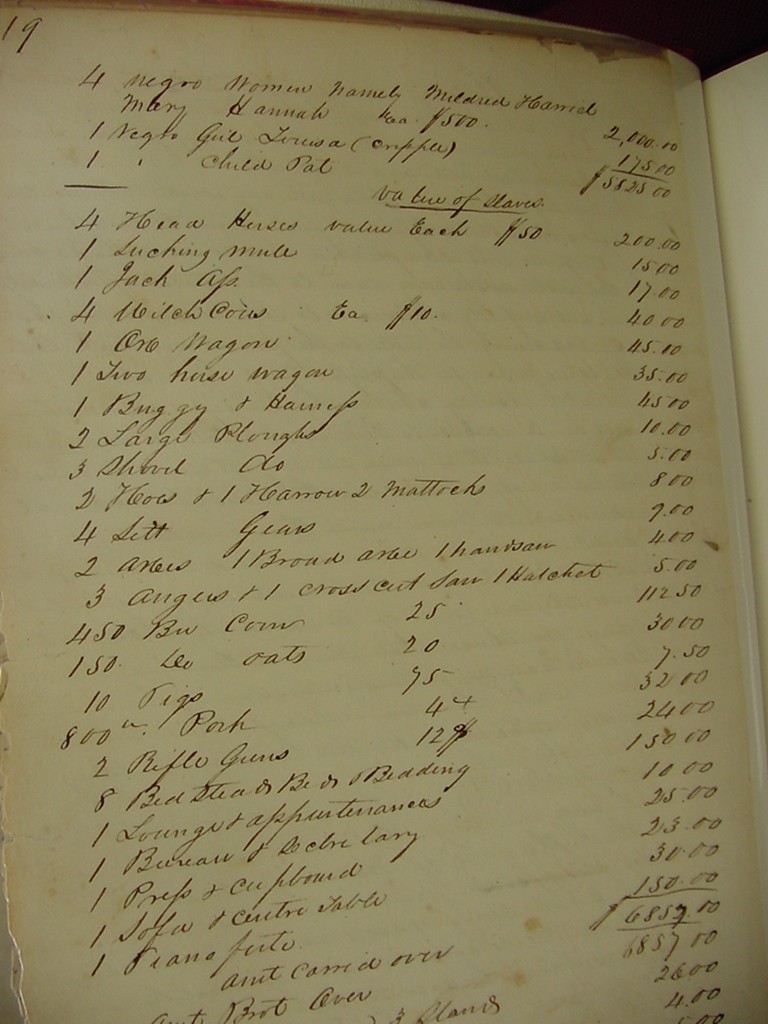 19
4 negro Women Namely Mildred Harriet
Mary Hannah Ea $500. 2,000.00
1 Negro Girl Louisa (Cripple) 175.00
1 " Child Pat $5825.00
value of slaves
4 Head Horses value Each $50 200.00
1 Suching mule 15.00
1 Jack Ass 17.00
4 Milch Cows Ea $10. 40.00
1 Oxe Wagon 45.00
1 Two horse wagon 35.00
1 Buggy & Harness 45.00
2 Large Ploughs 10.00
3 Shovel do 5.00
2 Hoes & 1 Harrow 2 Mattocks 8.00
4 Sett Gears 9.00
2 axes 1 Broad axe 1 handsaw 4.00
3 Augers & 1 cross cut Saw 1 Hatchet 5.00
450 Bu Corn 25 112.50
150 do oats 20 30.00
10 Pigs 75 7.50
800 w. Pork 4 32.00
2 Rifle Guns 12$ 24.00
8 Bed Steads Beds & Bedding 150.00
1 Lounge & appurtenances 10.00
1 Bureau & Secretary 25.00
1 Press & Cupboard 23.00
1 Sofa & Centre Table 30.00
1 Piano forte 150.00
amt carried over $6857.00
amt Brot Over 6857.00
26.00
3 Stands 4.00